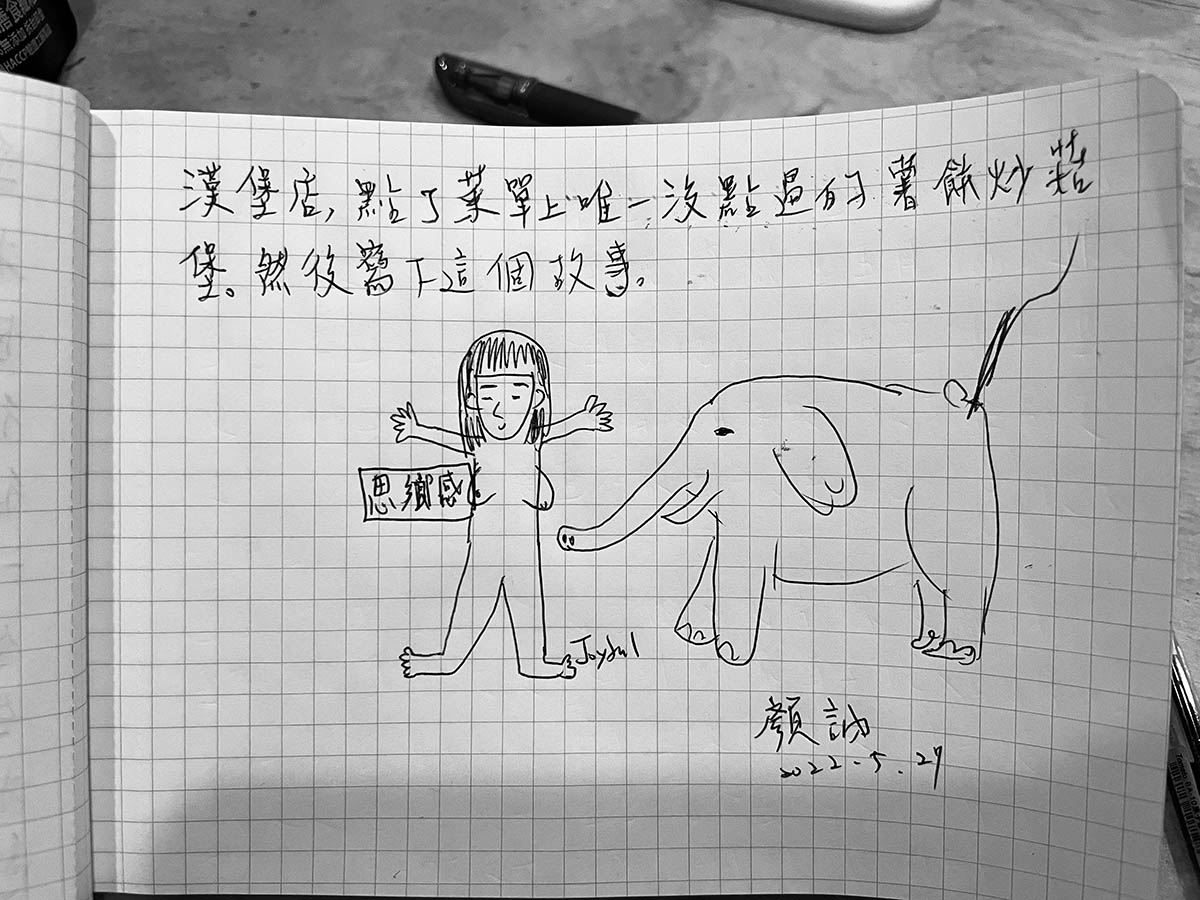 漢堡店,點了菜單上唯一沒點過的薯餅炒菇
堡。然後寫下這個故事。
思鄉感
Joyful
顏訥
2022.5.27